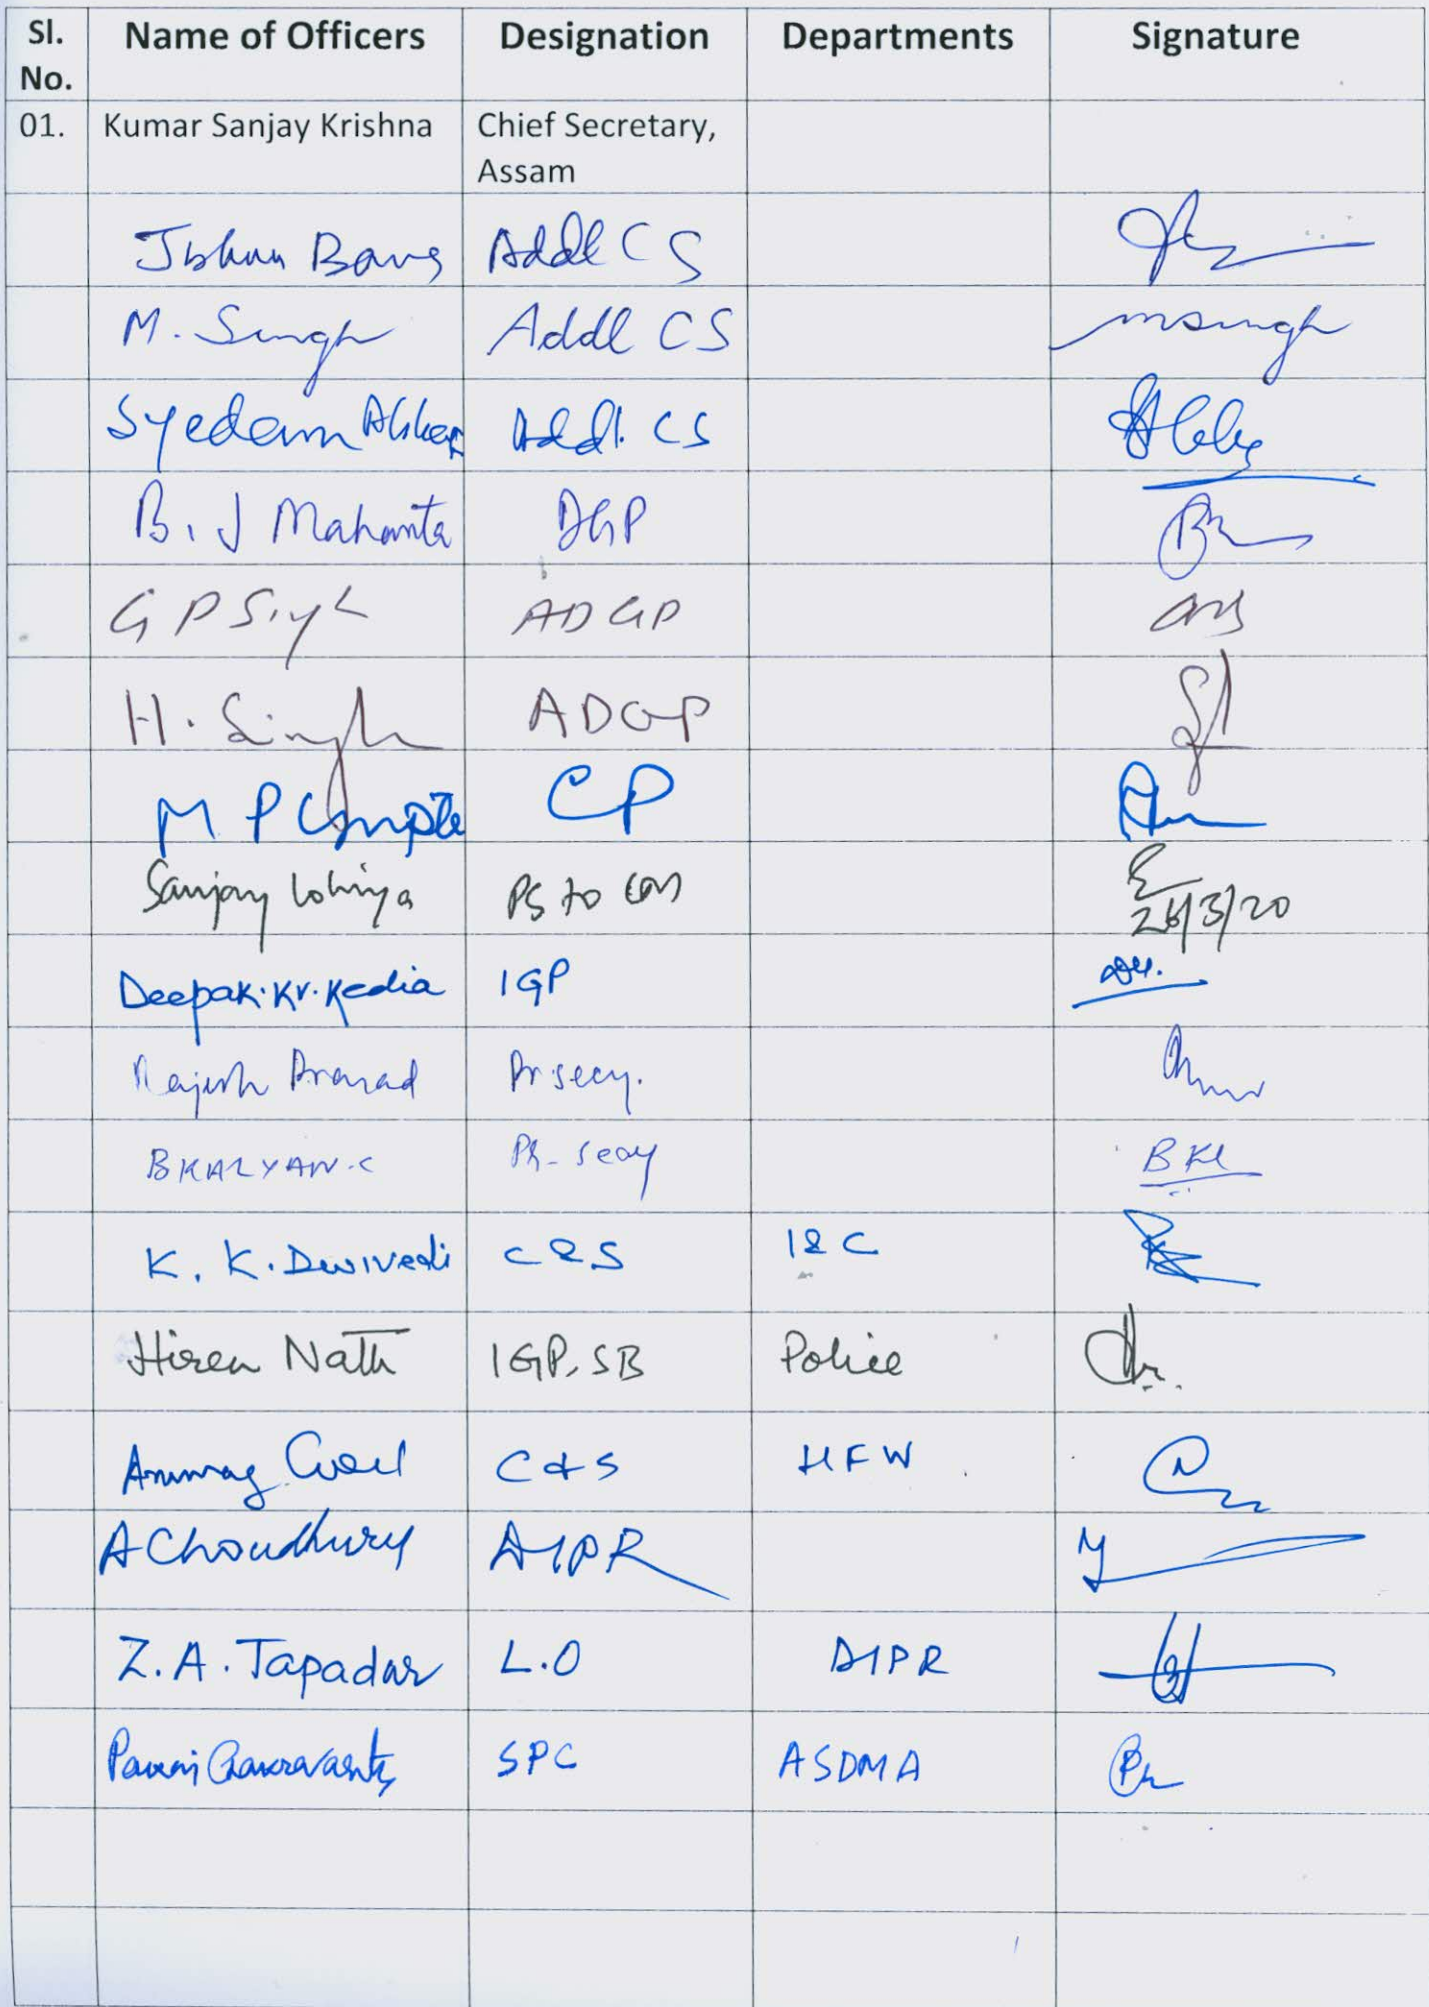 Sl. No. Name of Officers Designation Departments Signature
01. Kumar Sanjay Krishna Chief Secretary, Assam
Addl CS
M. Singh Addl CS msingh
Syedain Addl. CS
B. J Mahanta DGP
G P Singh ADGP
H. Singh ADGP
M P Gupta CP
Sanjay Lohiya PS to CM 26/3/20
Deepak. Kr. Kedia IGP
Rajesh Prasad Pr. secy.
B KALYAN. C Pr. Secy
K. K. Dwivedi C & S I & C
Hiren Nath IGP, SB Police
Anurag Goel C & S HFW
A Choudhury DIPR
Z. A. Tapadar L.O DIPR
Chakravarty SPC ASDMA